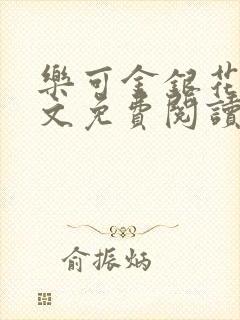 樂可金銀花
文免費閱讀
俞振炳